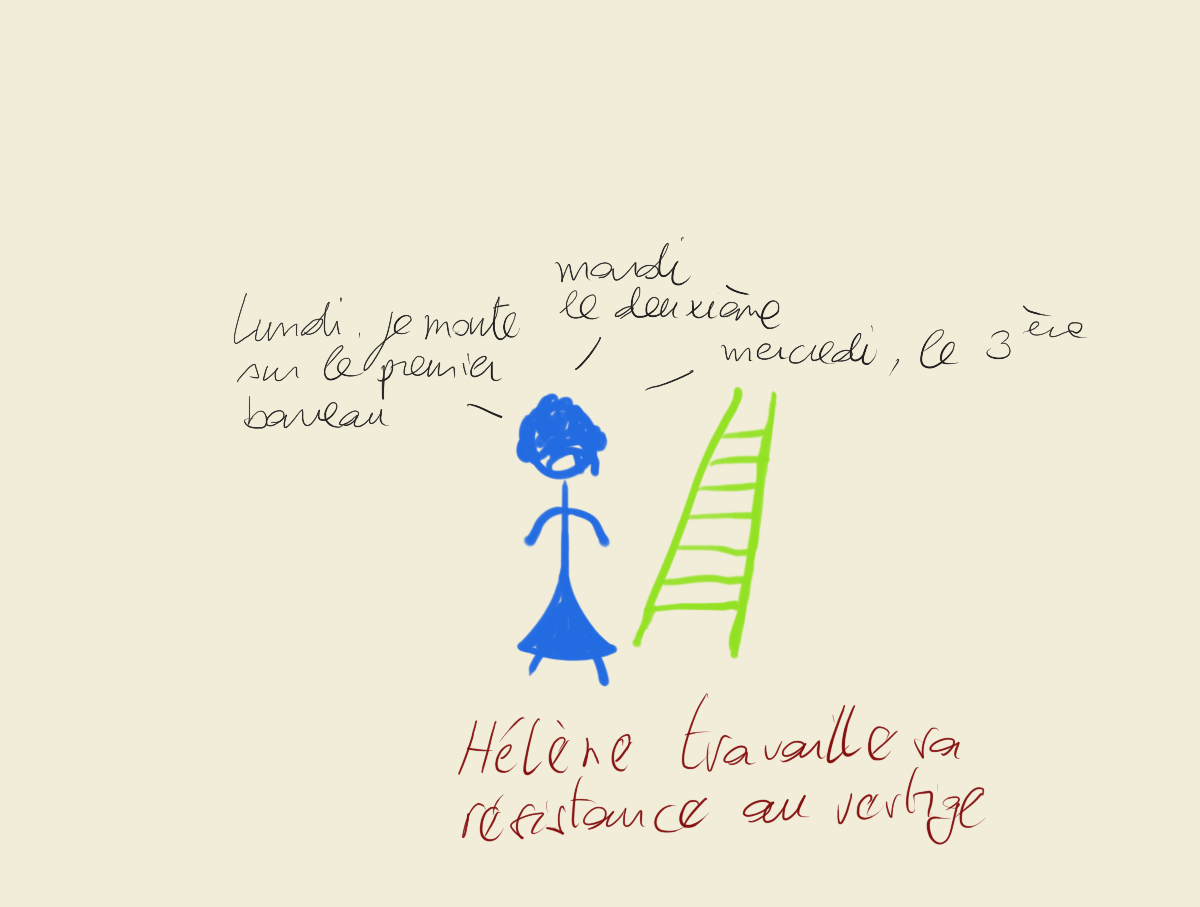 Lundi. je monte
sur le premier
barreau
mardi
le deuxième
mercredi, le 3ère
Hélène travaille sa
résistance au vertige